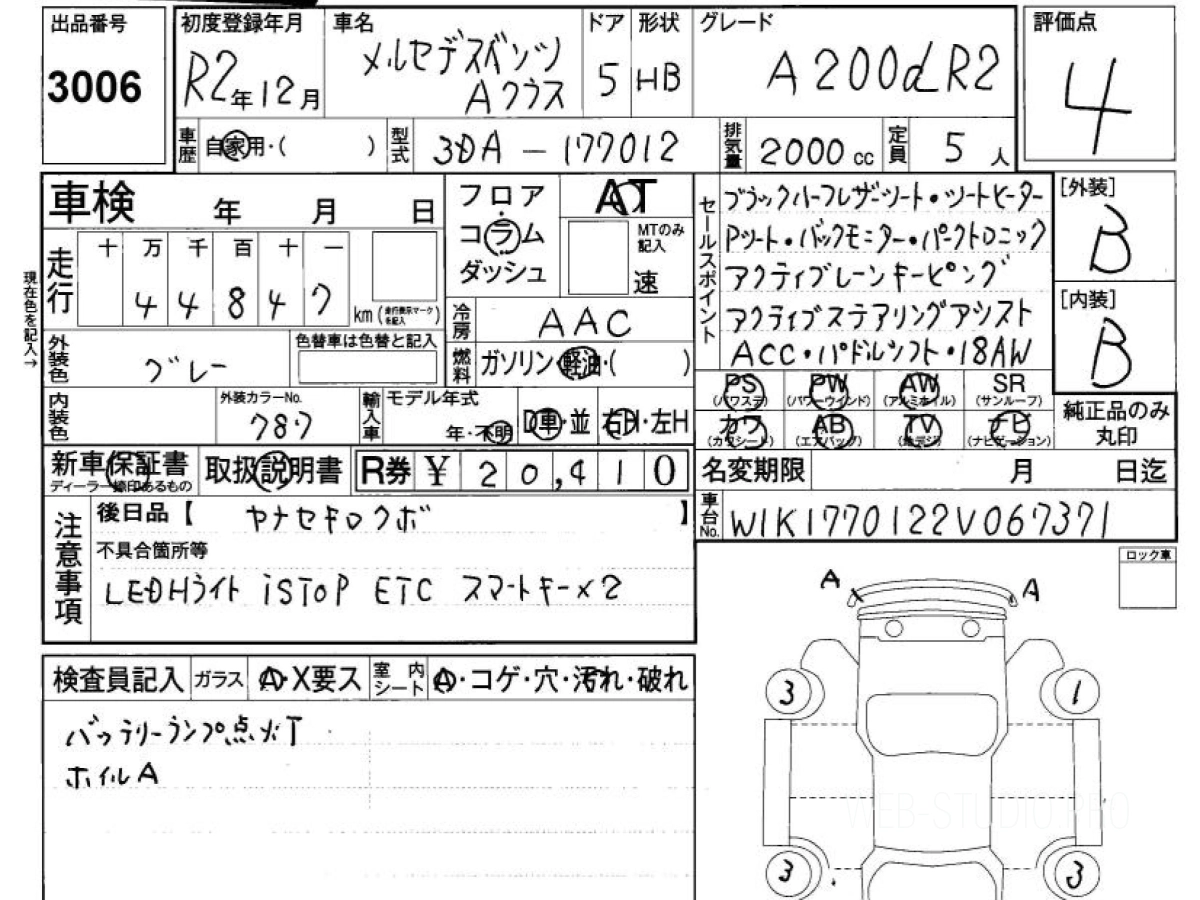 出品番号
3006
初度登録年月
R2年12月
車名
メルセデスベンツ
Aクラス
ドア
5
形状
HB
グレード
A200d R2
評価点
4
車歴
自家用・( )
型式
3DA-177012
排気量
2000 cc
定員
5 人
車検 年 月 日
走行
十 万 千 百 十 一
4 4 8 4 7
km (走行表示マークを記入)
現在色を記入→
フロア
・
コラム
ダッシュ
AT
MTのみ
記入
速
冷房
AAC
燃料
ガソリン・軽油・( )
セールスポイント
ブラックハーフレザーシート・シートヒーター
Pシート・バックモニター・パークトロニック
アクティブレーンキーピング
アクティブステアリングアシスト
ACC・パドルシフト・18AW
[外装]
B
[内装]
B
外装色
グレー
色替車は色替と記入
内装色
外装カラーNo.
787
輸入車
モデル年式
年・不明
D車・並
右H・左H
PS
(パワステ)
PW
(パワーウインド)
AW
(アルミホイル)
SR
(サンルーフ)
カワ
(カワシート)
AB
(エアバッグ)
TV
(地デジ)
ナビ
(ナビゲーション)
純正品のみ
丸印
新車保証書
ディーラー捺印あるもの
取扱説明書
R券 ¥ 20,410
名変期限 月 日迄
車台No.
W1K1770122V067371
注意事項
後日品【 ヤナセキロクボ 】
不具合箇所等
LEDHライト iSTOP ETC スマートキー×2
ロック車
A
A
3
1
3
3
検査員記入
ガラス
A・X要ス
室内
シート
A・コゲ・穴・汚れ・破れ
バッテリーランプ点灯
ホイルA
WEB-STUDIO.PRO